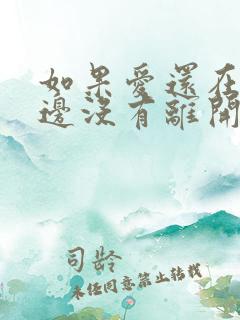 如果愛還在
邊沒有離開
司龄
未经同意禁止转载